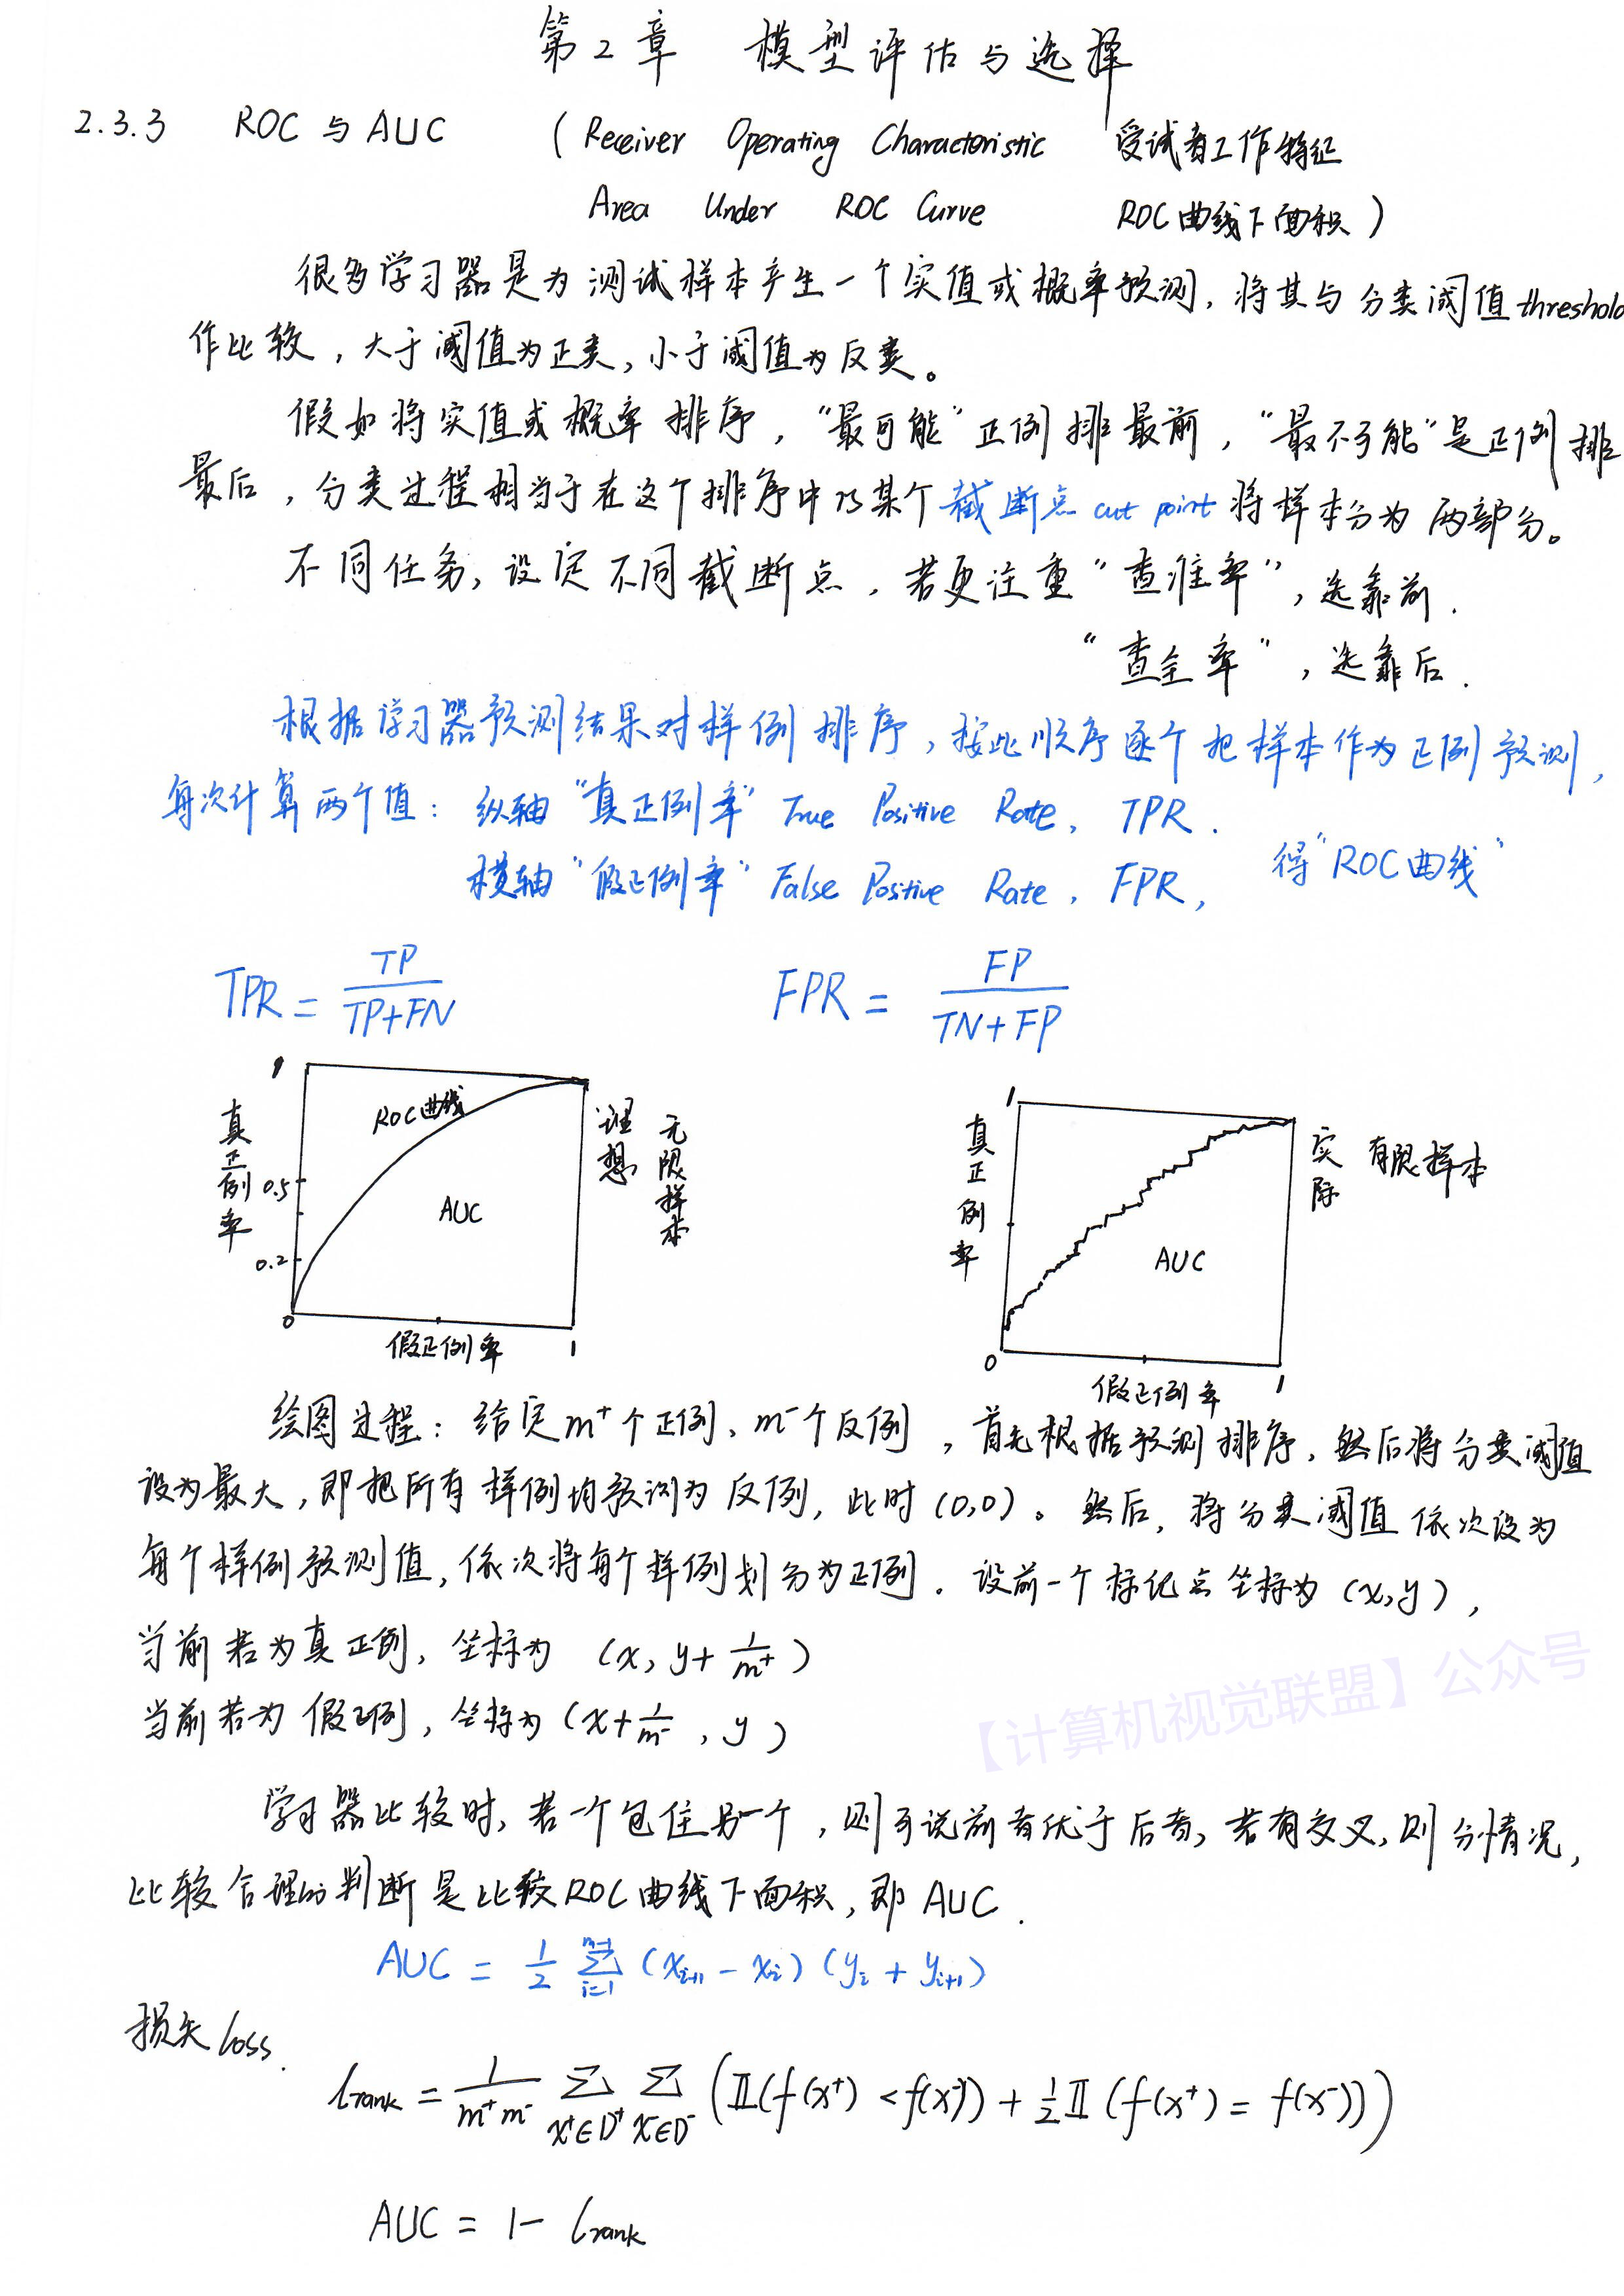 第2章 模型评估与选择
2.3.3 ROC与AUC (Receiver Operating Characteristic 受试者工作特征
Area Under ROC Curve ROC曲线下面积)
很多学习器是为测试样本产生一个实值或概率预测,将其与分类阈值threshold
作比较,大于阈值为正类,小于阈值为反类。
假如将实值或概率排序,“最可能”正例排最前,“最不可能”是正例排
最后,分类过程相当于在这个排序中以某个截断点cut point将样本分为两部分。
不同任务,设定不同截断点,若更注重“查准率”,选靠前.
“查全率”,选靠后.
根据学习器预测结果对样例排序,按此顺序逐个把样本作为正例预测,
每次计算两个值: 纵轴“真正例率” True Positive Rate, TPR.
横轴“假正例率” False Positive Rate, FPR, 得“ROC曲线”
TPR = TP/(TP+FN) FPR = FP/(TN+FP)
1
ROC曲线
真正例率
0.5
0.2
AUC
0
假正例率
1
理想
无限样本
1
真正例率
AUC
0
假正例率
1
实际
有限样本
绘图过程: 给定m⁺个正例、m⁻个反例,首先根据预测排序,然后将分类阈值
设为最大,即把所有样例均预测为反例,此时(0,0)。然后,将分类阈值依次设为
每个样例预测值,依次将每个样例划分为正例.设前一个标记点坐标为(x,y),
当前若为真正例,坐标为 (x, y+1/m⁺)
当前若为假正例,坐标为(x+1/m⁻, y)
【计算机视觉联盟】公众号
学习器比较时,若一个包住另一个,则可说前者优于后者,若有交叉,则分情况,
比较合理的判断是比较ROC曲线下面积,即AUC.
AUC = 1/2 ∑_{i=1}^{m-1} (x_{i+1} - x_i)(y_i + y_{i+1})
损失loss.
ℓ_rank = 1/(m⁺m⁻) ∑_{x⁺∈D⁺} ∑_{x⁻∈D⁻} (𝕀(f(x⁺) < f(x⁻)) + 1/2 𝕀(f(x⁺) = f(x⁻)))
AUC = 1 - ℓ_rank